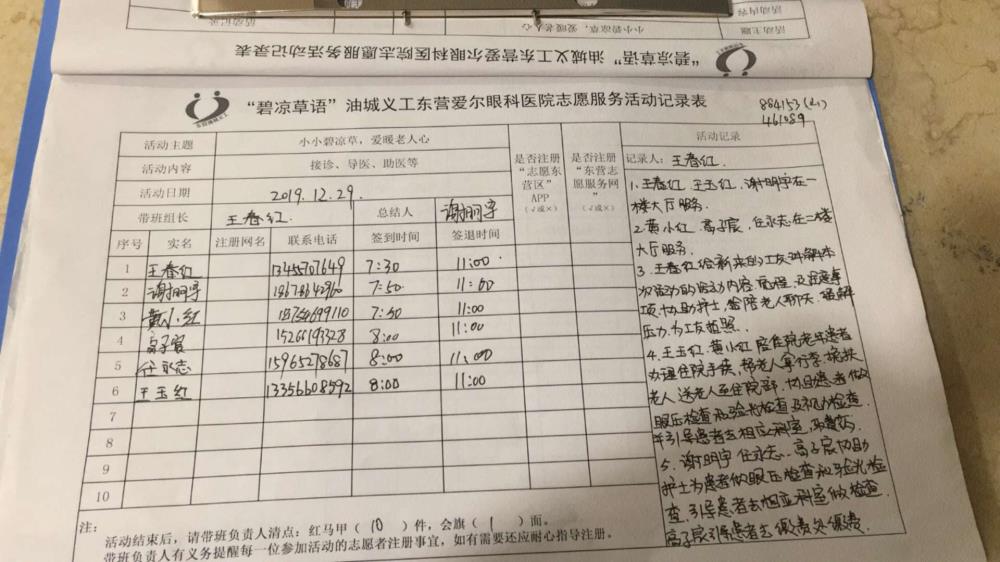 活动内容
小小碧凉草，爱暖老人心
活动主题
活动记录
“碧凉草语”油城义工东营爱尔眼科医院志愿服务活动记录表
“碧凉草语”油城义工东营爱尔眼科医院志愿服务活动记录表
884153(46)
461089
活动主题 小小碧凉草，爱暖老人心
活动内容 接诊、导医、助医等
活动日期 2019.12.29.
带班组长 王春红. 总结人 谢明宇
是否注册
“志愿东
营区”
APP
（√或×）
是否注册
“东营志
愿服务网
”
（√或×）
序号 实名 注册网名 联系电话 签到时间 签退时间
1 王春红 7:30 11:00
2 谢明宇 7:50 11:00
3 黄小红 7:50 11:00
4 高子宸 15266193328 8:00 11:00
5 任永志 15965278687 8:00 11:00
6 王玉红 13356608592 8:00 11:00
7
8
9
10
注：
活动结束后，请带班负责人清点：红马甲（10）件，会旗（1）面。
带班负责人有义务提醒每一位参加活动的志愿者注册事宜，如有需要还应耐心指导注册。
活动记录
记录人：王春红.
1.王春红.王玉红.谢明宇在一
楼大厅服务.
2.黄小红.高子宸.任永志在二楼
大厅服务.
3.王春红给新来的工友讲解本
次活动的活动内容.流程.及注意事
项.协助护士,陪老人聊天.缓解
压力.为工友拍照.
4.王玉红.黄小红陪住院老年患者
办理住院手续.帮老人拿行李.搀扶
老人送老人至住院部.协助患者做
眼压检查和验光检查及视力检查.
并引导患者去相应科室.
5.谢明宇 任永志.高子宸协助
护士为患者做眼压检查和验光检
查.引导患者去相应科室做检查.
高子宸引导患者去缴费处缴费.